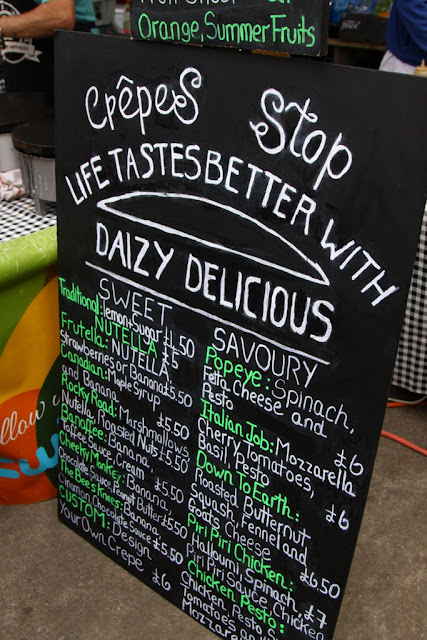 Orange, Summer Fruits
Crêpes Stop
LIFE TASTES BETTER WITH
DAIZY DELICIOUS
SWEET
Traditional: lemon & Sugar £4.50
NUTELLA £5
Frutella: NUTELLA
Strawberries or Banana £5.50
Canadian: Maple Syrup
and Banana £5.50
Rocky Road: Marshmallows
Nutella, Roasted Nuts £5.50
Banoffee: Banana,
Toffee Sauce, Cream £5.50
Cheeky Monkey: Banana,
Chocolate Sauce, Peanut Butter £5.50
The Bee's Knees: Banana,
Cinnamon, Chocolate Sauce £5.50
CUSTOM: Design
Your Own Crêpe £6
SAVOURY
Popeye: Spinach,
Fetta Cheese and
Pesto £6
Italian Job: Mozzarella
Cherry Tomatoes,
Basil, Pesto £6
Down To Earth:
Roasted Butternut
Squash, Fennel and
Goats Cheese £6.50
Piri Piri Chicken:
Halloumi, Spinach,
Piri Piri Sauce, Chicken £7
Chicken Pesto:
Chicken, Pesto, S
Tomatoes and
Mozzarella